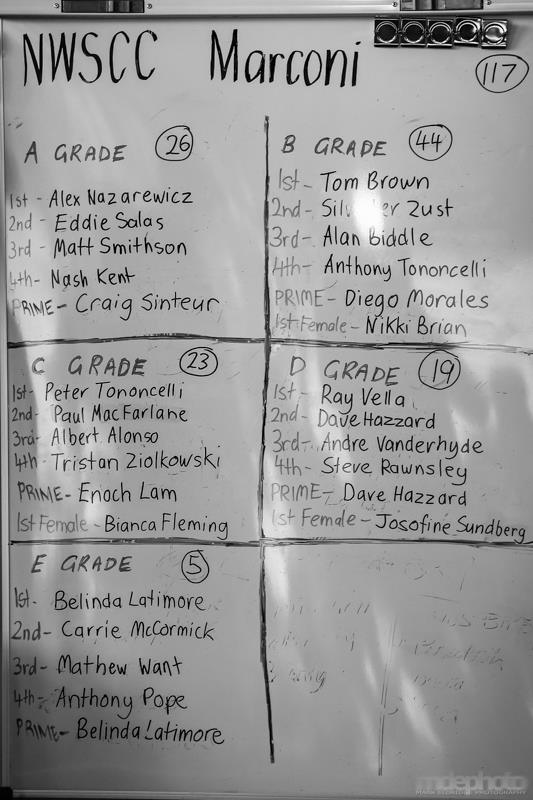 NWSCC Marconi
117
A GRADE 26
1st - Alex Nazarewicz
2nd - Eddie Salas
3rd - Matt Smithson
4th - Nash Kent
PRIME - Craig Sinteur
B GRADE 44
1st - Tom Brown
2nd - Zust
3rd - Alan Biddle
4th - Anthony Tononcelli
PRIME - Diego Morales
1st Female - Nikki Brian
C GRADE 23
1st - Peter Tononcelli
2nd - Paul MacFarlane
3rd - Albert Alonso
4th - Tristan Ziolkowski
PRIME - Enoch Lam
1st Female - Bianca Fleming
D GRADE 19
1st - Ray Vella
2nd - Dave Hazzard
3rd - Andre Vanderhyde
4th - Steve Rawnsley
PRIME - Dave Hazzard
1st Female - Josofine Sundberg
E GRADE 5
1st - Belinda Latimore
2nd - Carrie McCormick
3rd - Mathew Want
4th - Anthony Pope
PRIME - Belinda Latimore
mdephoto